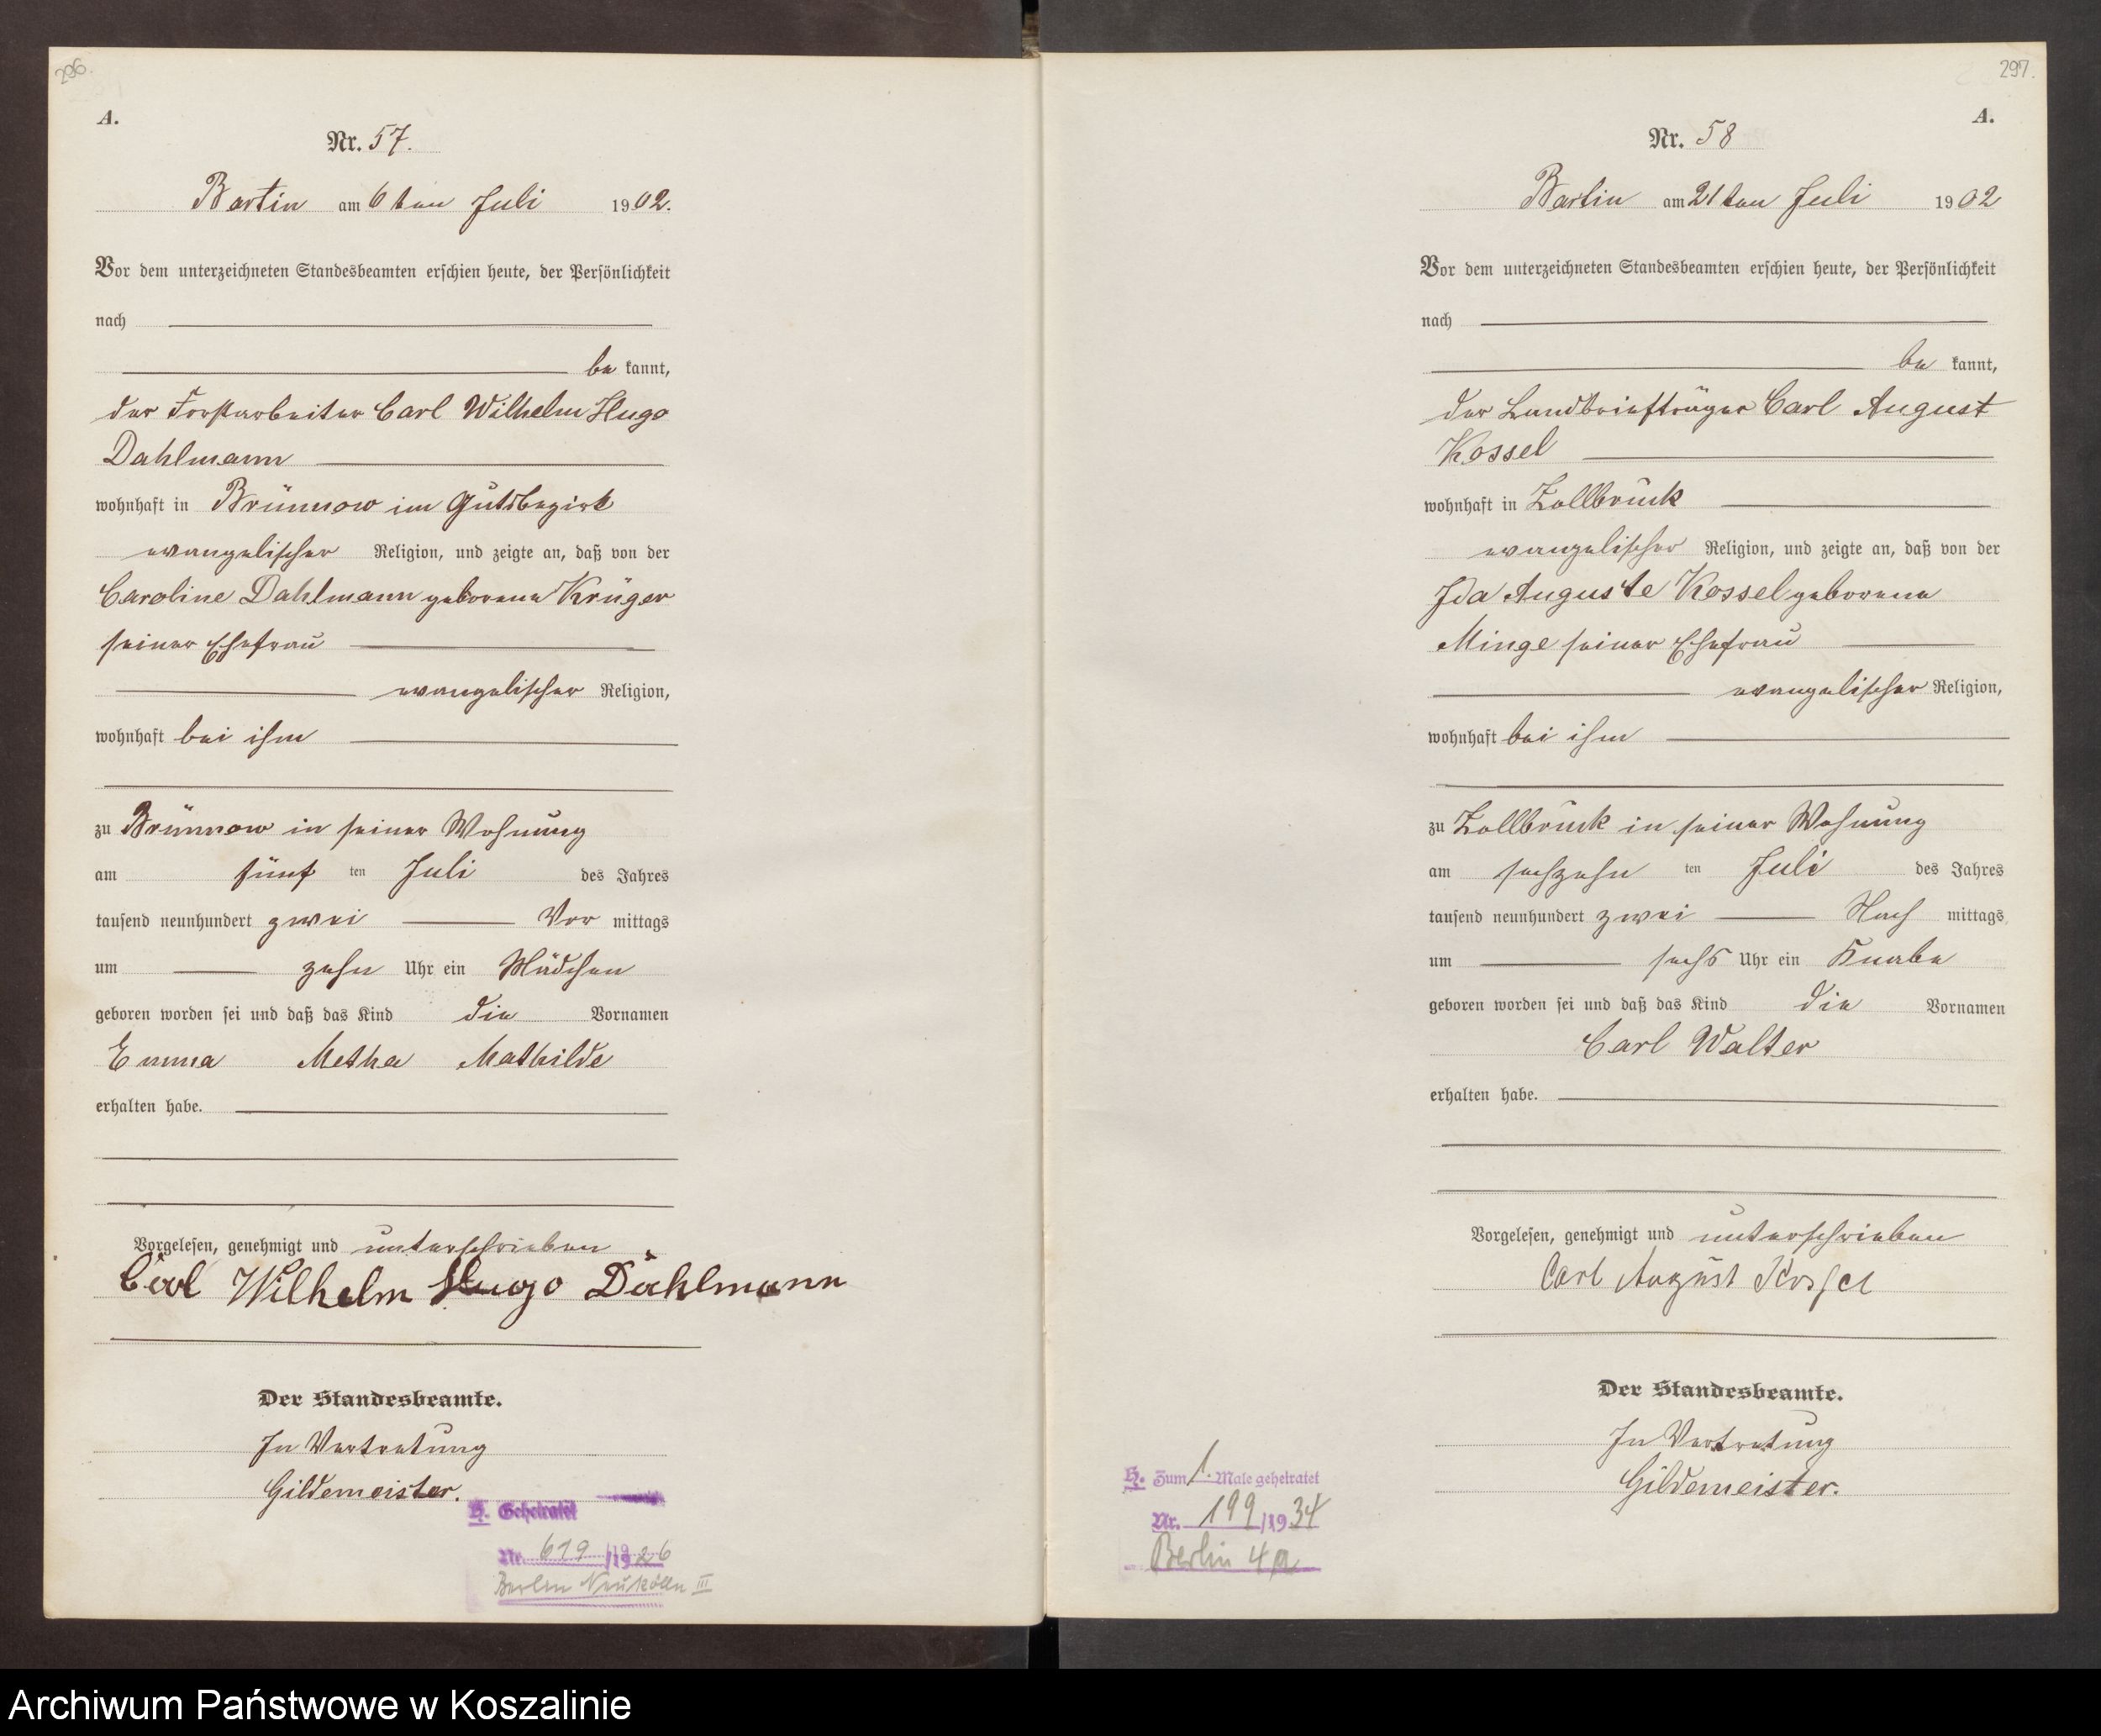 296.
A.
Nr. 57.
Bartin am 6 ten Juli 1902.
Vor dem unterzeichneten Standesbeamten erschien heute, der Persönlichkeit
nach
be kannt,
der Forstarbeiter Carl Wilhelm Hugo
Dahlmann
wohnhaft in Brünnow im Gutsbezirk
evangelischer Religion, und zeigte an, daß von der
Caroline Dahlmann geborene Krüger
seiner Ehefrau
evangelischer Religion,
wohnhaft bei ihm
zu Brünnow in seiner Wohnung
am fünf ten Juli des Jahres
tausend neunhundert zwei Vor mittags
um zehn Uhr ein Mädchen
geboren worden sei und daß das Kind die Vornamen
Emma Metha Mathilde
erhalten habe.
Vorgelesen, genehmigt und unterschrieben
Carl Wilhelm Hugo Dahlmann
Der Standesbeamte.
In Vertretung
Gildemeister.
H. Geheiratet
Nr. 619 /1926
Berlin Neukölln III
297.
A.
Nr. 58
Bartin am 21 ten Juli 1902
Vor dem unterzeichneten Standesbeamten erschien heute, der Persönlichkeit
nach
be kannt,
der Landbriefträger Carl August
Kossel
wohnhaft in Zollbrück
evangelischer Religion, und zeigte an, daß von der
Ida Auguste Kossel geborene
Minge seiner Ehefrau
evangelischer Religion,
wohnhaft bei ihm
zu Zollbrück in seiner Wohnung
am sechzehn ten Juli des Jahres
tausend neunhundert zwei Nach mittags
um sechs Uhr ein Knabe
geboren worden sei und daß das Kind die Vornamen
Carl Walter
erhalten habe.
Vorgelesen, genehmigt und unterschrieben
Carl August Kossel
Der Standesbeamte.
In Vertretung
Gildemeister.
H. Zum 1. Male geheiratet
Nr. 199 /1934
Berlin 4a
Archiwum Państwowe w Koszalinie